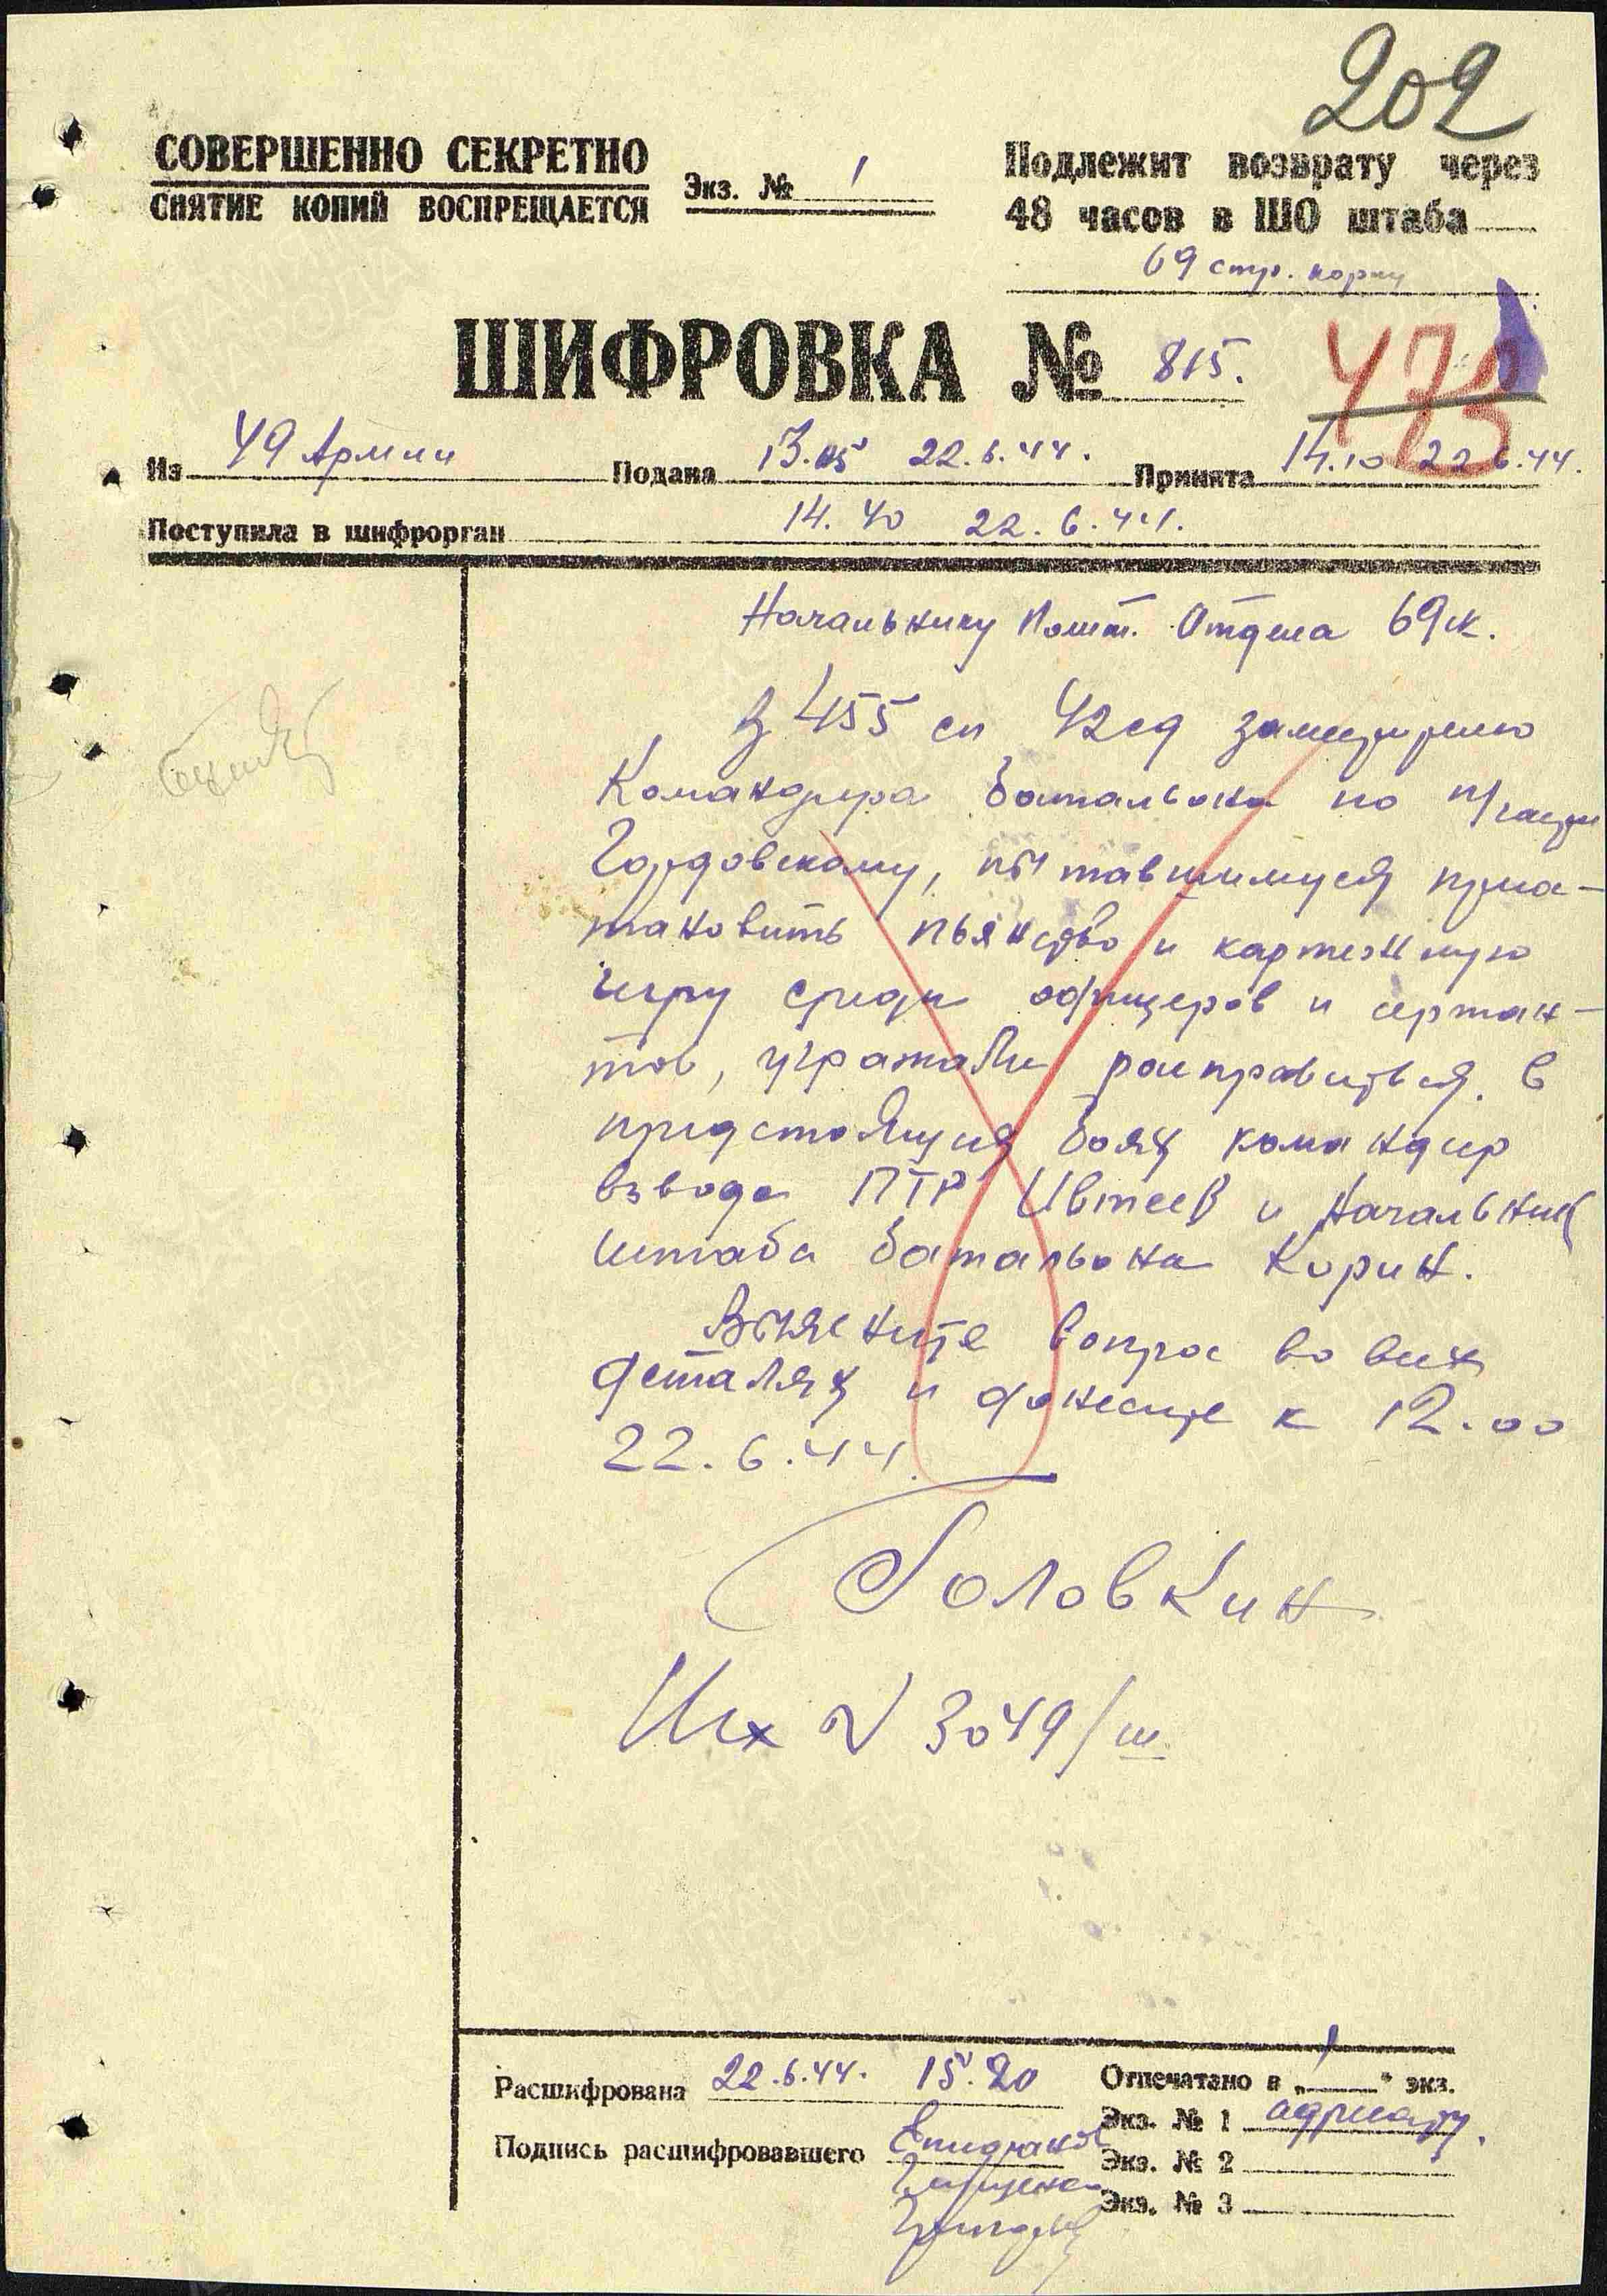 202
СОВЕРШЕННО СЕКРЕТНО
СНЯТИЕ КОПИЙ ВОСПРЕЩАЕТСЯ
Экз. № 1
Подлежит возврату через
48 часов в ШО штаба
69 стр. корпу
ШИФРОВКА № 815.
473
Из 49 Армии Подана 13.05 22.6.44. Принята 14.10 22.6.44.
Поступила в шифрорган 14.40 22.6.44.
Начальнику Полит. Отдела 69 ск.
В 455 сп 42 сд заместителю
Командира батальона по п/части
Гордовскому, пытавшимуся приа-
тановить пьянство и картежную
игру среди офицеров и сержан-
тов, угражали расправиться в
предстоящих боях командир
взвода ПТР Ивтеев и Начальник
штаба батальона Корин.
Выясните вопрос во всех
деталях и донесите к 12.00
22.6.44.
Головкин
Их № 3049/ш
Расшифрована 22.6.44. 15.20
Подпись расшифровавшего
Отпечатано в „1" экз.
Экз. № 1 адресату.
Экз. № 2
Экз. № 3